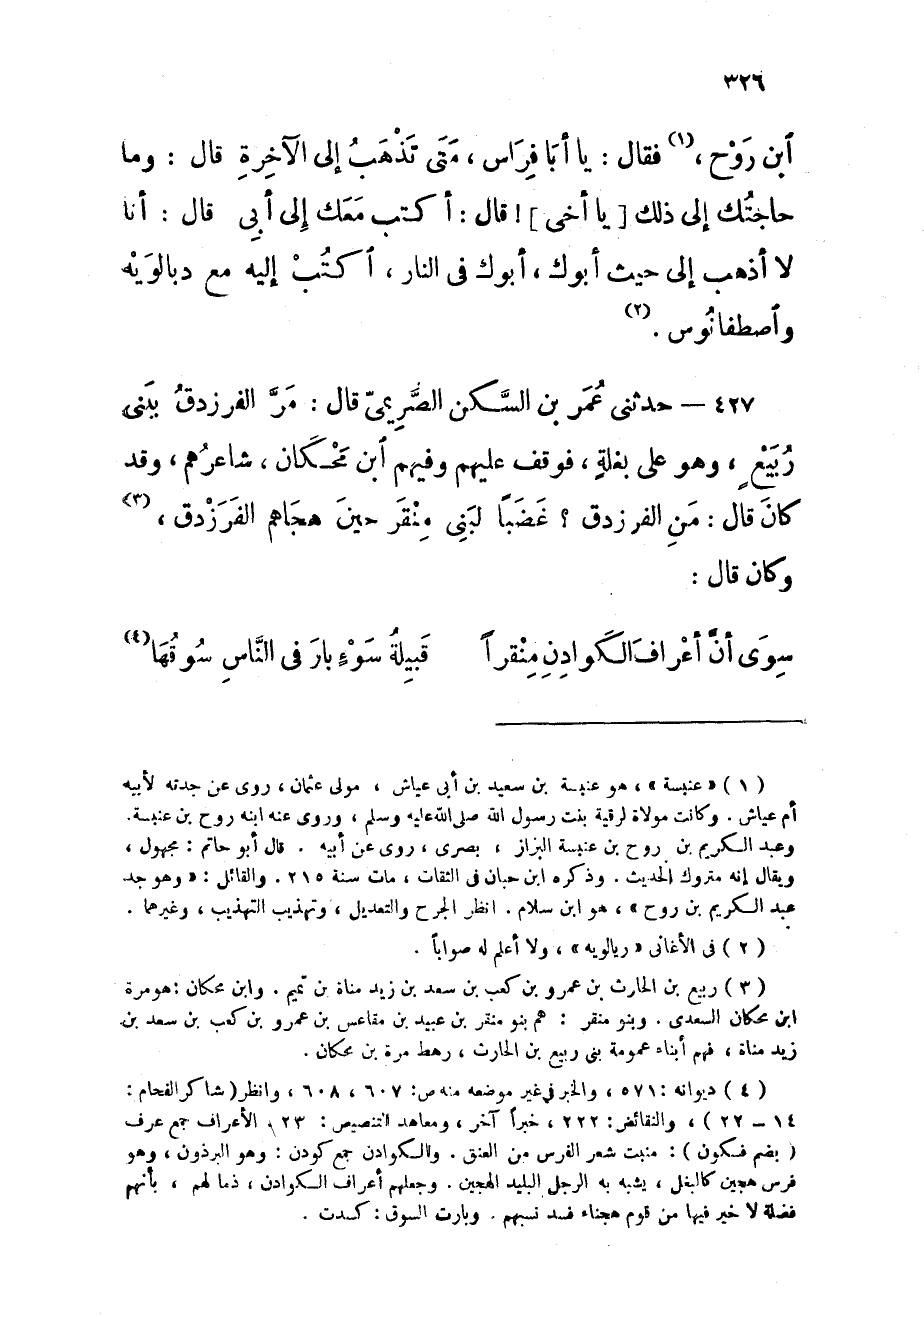 ٣٢٦
ٱبن رَوْح ،(١) فقال : يا أبَا فِرَاس ، مَتَى تَذْهَبُ إلى الآخِرةِ قال : وما
حاجتُك إلى ذلك [ يا أخى ] ! قال : أكتب مَعَك إِلى أبِي قال : أنا
لا أذهب إلى حيث أبوك ، أبوك فى النار ، ٱكتُبْ إليه مع دبالوَيْه
وٱصطفانُوس . (٢)
٤٢٧ — حدثنى عُمَر بن السَّكن الصَّرِيمىّ قال : مَرَّ الفرزدقُ بِبَنى
رُبَيْعٍ ، وهو على بغلةٍ ، فوقف عليهم وفيهم ٱبن مَحْكَان ، شاعرُهم ، وقد
كانَ قال : مَنِ الفرزدق ؟ غَضَبًا لبَنِى مِنْقَر حينَ هجَاهم الفَرَزْدق ، (٣)
وكان قال :
سِوَى أنَّ أعْرافَ الكَوادِنِ مِنْقراً قَبِيلةُ سَوْءٍ بارَ فى النَّاسِ سُوقُهَا (٤)
( ١ ) « عنبسة » ، هو عنبسة بن سعيد بن أبى عياش ، مولى عثمان ، روى عن جدته لأبيه
أم عياش . وكانت مولاة لرقية بنت رسول الله صلى الله عليه وسلم ، وروى عنه ابنه روح بن عنبسة.
وعبد الكريم بن روح بن عنبسة البزاز ، بصرى ، روى عن أبيه . قال أبو حاتم : مجهول ،
ويقال إنه متروك الحديث . وذكره ابن حبان فى الثقات ، مات سنة ٢١٥ . والقائل : « وهو جد
عبد الكريم بن روح » ، هو ابن سلام . انظر الجرح والتعديل ، وتهذيب التهذيب ، وغيرهما .
( ٢ ) فى الأغانى « ريالويه » ، ولا أعلم له صواباً .
( ٣ ) ربيع بن الحارث بن عمرو بن كعب بن سعد بن زيد مناة بن تميم . وابن محكان : هو مرة
ابن محكان السعدى . وبنو منقر : هم بنو منقر بن عبيد بن مقاعس بن عمرو بن كعب بن سعد بن
زيد مناة ، فهم أبناء عمومة بنى ربيع بن الحارث ، رهط مرة بن محكان .
( ٤ ) ديوانه : ٥٧١ ، والخبر فى غير موضعه منه ص : ٦٠٧ ، ٦٠٨ ، وانظر ( شاكر الفحام :
١٤ — ٢٢ ) ، والنقائض : ٢٢٢ ، خبراً آخر ، ومعاهد التنصيص : ٢٣ . الأعراف جمع عرف
( بضم فسكون ) : منبت شعر الفرس من العنق . والكوادن جمع كودن : وهو البرذون ، وهو
فرس هجين كالبغل ، يشبه به الرجل البليد الهجين . وجعلهم أعراف الكوادن ، ذما لهم ، بأنهم
فضلة لا خير فيها من قوم هجناء فسد نسبهم . وبارت السوق : كسدت .